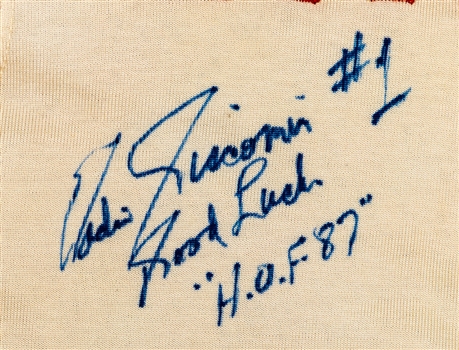 Eddie Giacomin #1
Good Luck
"H.O.F. 87"